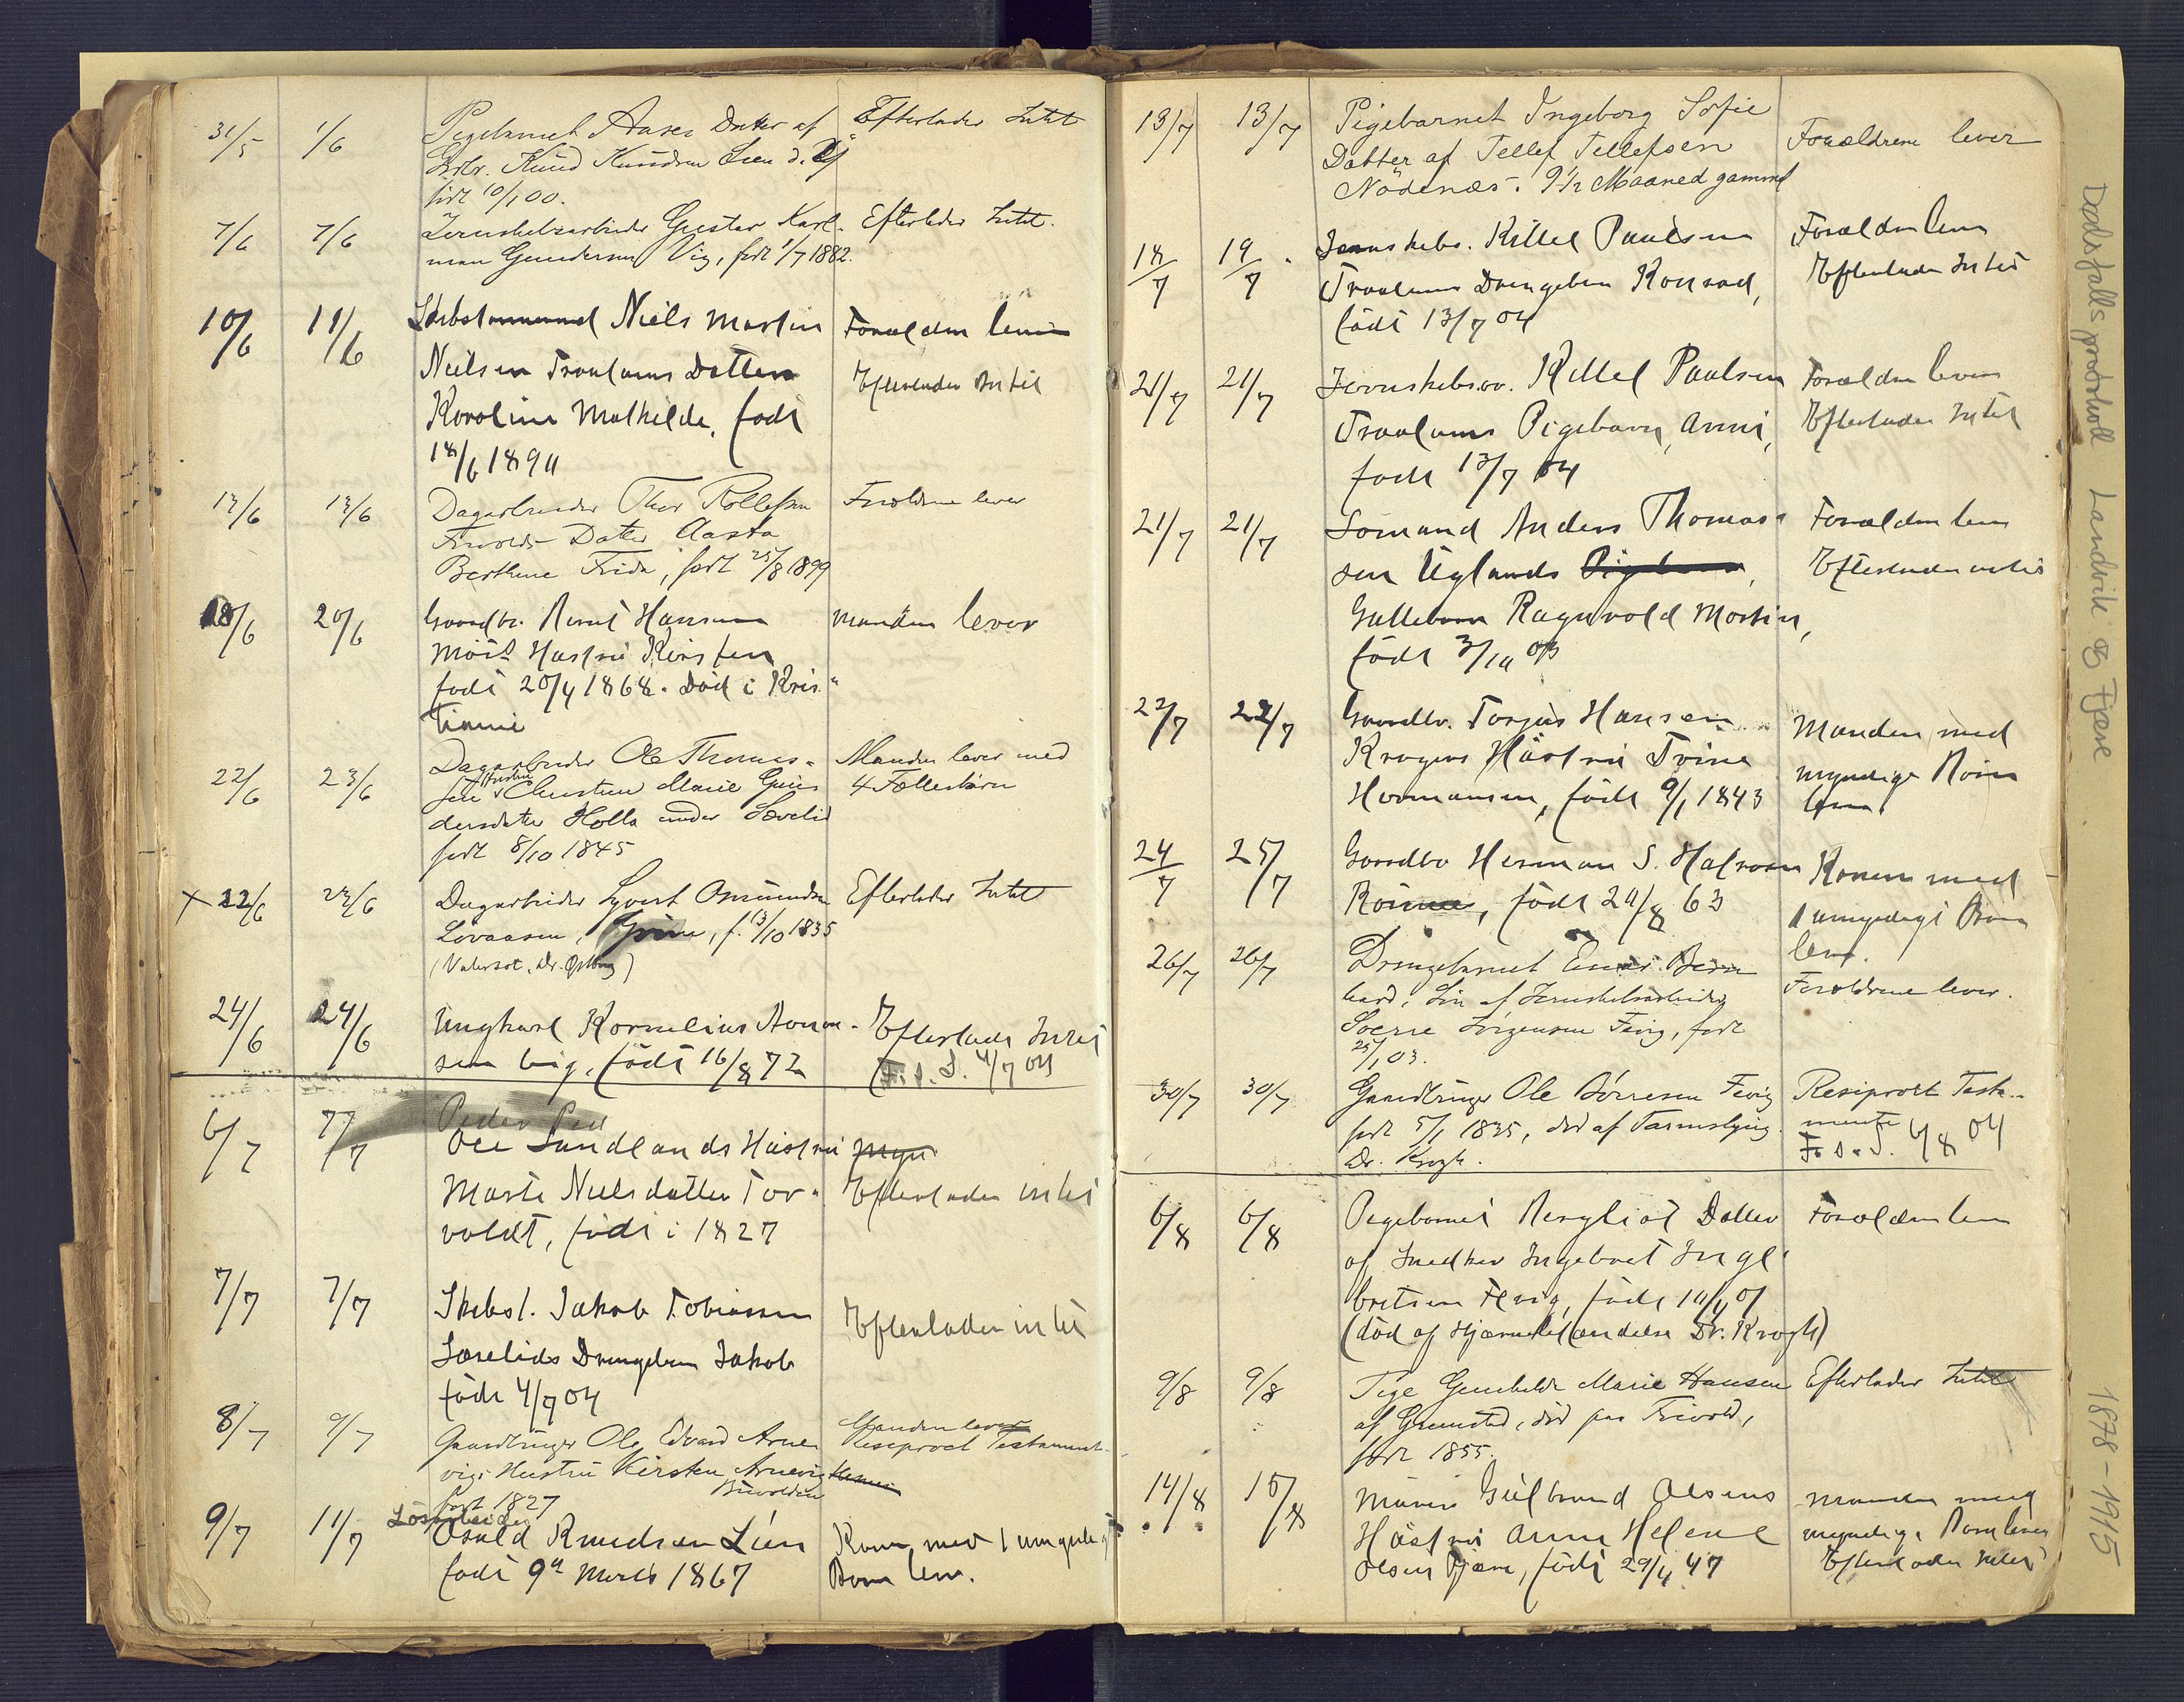 31/5 1/6 Pigebarnet Aase Datter af Efterlader Intet
Grbr. Knud Knudsen Lien d.
født 10/1 00.
7/6 7/6 Jernskibsarbeider Gustav Karl- Efterlader Intet.
man Gundersen Vig, født 1/7 1882.
10/6 11/6 Niels Martin Forældrene lever
Nielsen Traalums Datter Efterlader Intet
Karoline Mathilde, født
18/6 1894
13/6 13/6 Dagarbeider Thor Rollefsen Forældrene lever
Frivolds Datter Aasta
Berthine Frida, født 25/8 1899
18/6 20/6 Gaardbr. Bernt Hansen Manden lever
Hustru Kirsten
født 20/4 1868. Død i Kris-
tiania
22/6 23/6 Dagarbeider Ole Thomas- Manden lever med
sen Hustru Christine Marie Gun- 4 Fællesbørn
dersdatter Holla under Sævelid
født 8/10 1845
x 22/6 23/6 Dagarbeider Syvert Osmundsen Efterlader Intet
Lovaasen, , f. 13/10 1835
24/6 24/6 Ungkarl Kornelius Aanon- Efterlader Intet
sen Vig, født 16/8 72 F.s.S. 4/7 04
Peder Ped
6/7 7/7 Ole Sundlands Hustru Myn
Marte Nielsdatter Tor- Efterlader intet
voldt, født i 1827
7/7 7/7 Skibst. Jakob Tobiassen Efterlader intet
Sævelids Drengebarn Jakob
født 4/7 04
Manden lever
8/7 9/7 Gaardbruger Ole Edvard Arne Resiproct Testament
vigs Hustru Kirsten Arnevig
født 1827
Løsarbeider
9/7 11/7 Osuld Knudsen Lien Kone med 1 umyndigt
født 9de Marts 1867 Barn lever.
13/7 13/7 Pigebarnet Ingeborg Sofie Forældrene lever
Datter af Tellef Tellefsen
Nødenæs. 9 1/2 Maaned gammel
18/7 19/7 Jernskibs. Kittel Paulsen Forældrene lever
Traalums Drengebarn Konrad, Efterlader Intet
født 13/7 04
21/7 21/7 Jernskibsar. Kittel Paulsen Forældrene lever
Traalums Pigebarn, Anni, Efterlader Intet
født 13/7 04
21/7 21/7 Sømand Anders Thomas- Forældrene lever
sen Uglands Pigebarn, Efterlader intet
Guttebarn Ragnvald Martin,
født 3/10 03
22/7 22/7 Gaardbr. Torjus Hansen Manden med
Hustru Trine myndige Børn
Hermansen, født 9/1 1843 lever
24/7 25/7 Gaardbr Herman S. Konen med
, født 24/8 63 1 umyndigt Barn
lever.
26/7 26/7 Drengebarnet Einar Bern- Forældrene lever.
hard, Søn af Jernskibsarbeider
Sverre Jørgensen Fevig, født
25/1 03.
30/7 30/7 Gaardbruger Ole Børresen Fevig Resiproct Testa-
født 5/1 1835, død af Tarmslyng. mente
Dr. Krogh. F.s.S. 6/8 04
6/8 6/8 Pigebarnet Bergliot Datter Forældrene lever
af Snedker Ingebret Inge-
bretsen Fevig, født 14/4 01
(død af Hjernebetændelse Dr. Krogh)
9/8 9/8 Pige Gunhilde Marie Hansen Efterlader Intet
af Grimstad, død paa Frivold,
født 1855.
14/8 15/8 Murer Gulbrand Olsens Manden med
Hustru Anne Helene myndige Børn lever
Olsen Fjære, født 29/4 47 Efterlader Intet
Dødsfallsprotokoll Landvik og Fjære 1878-1915